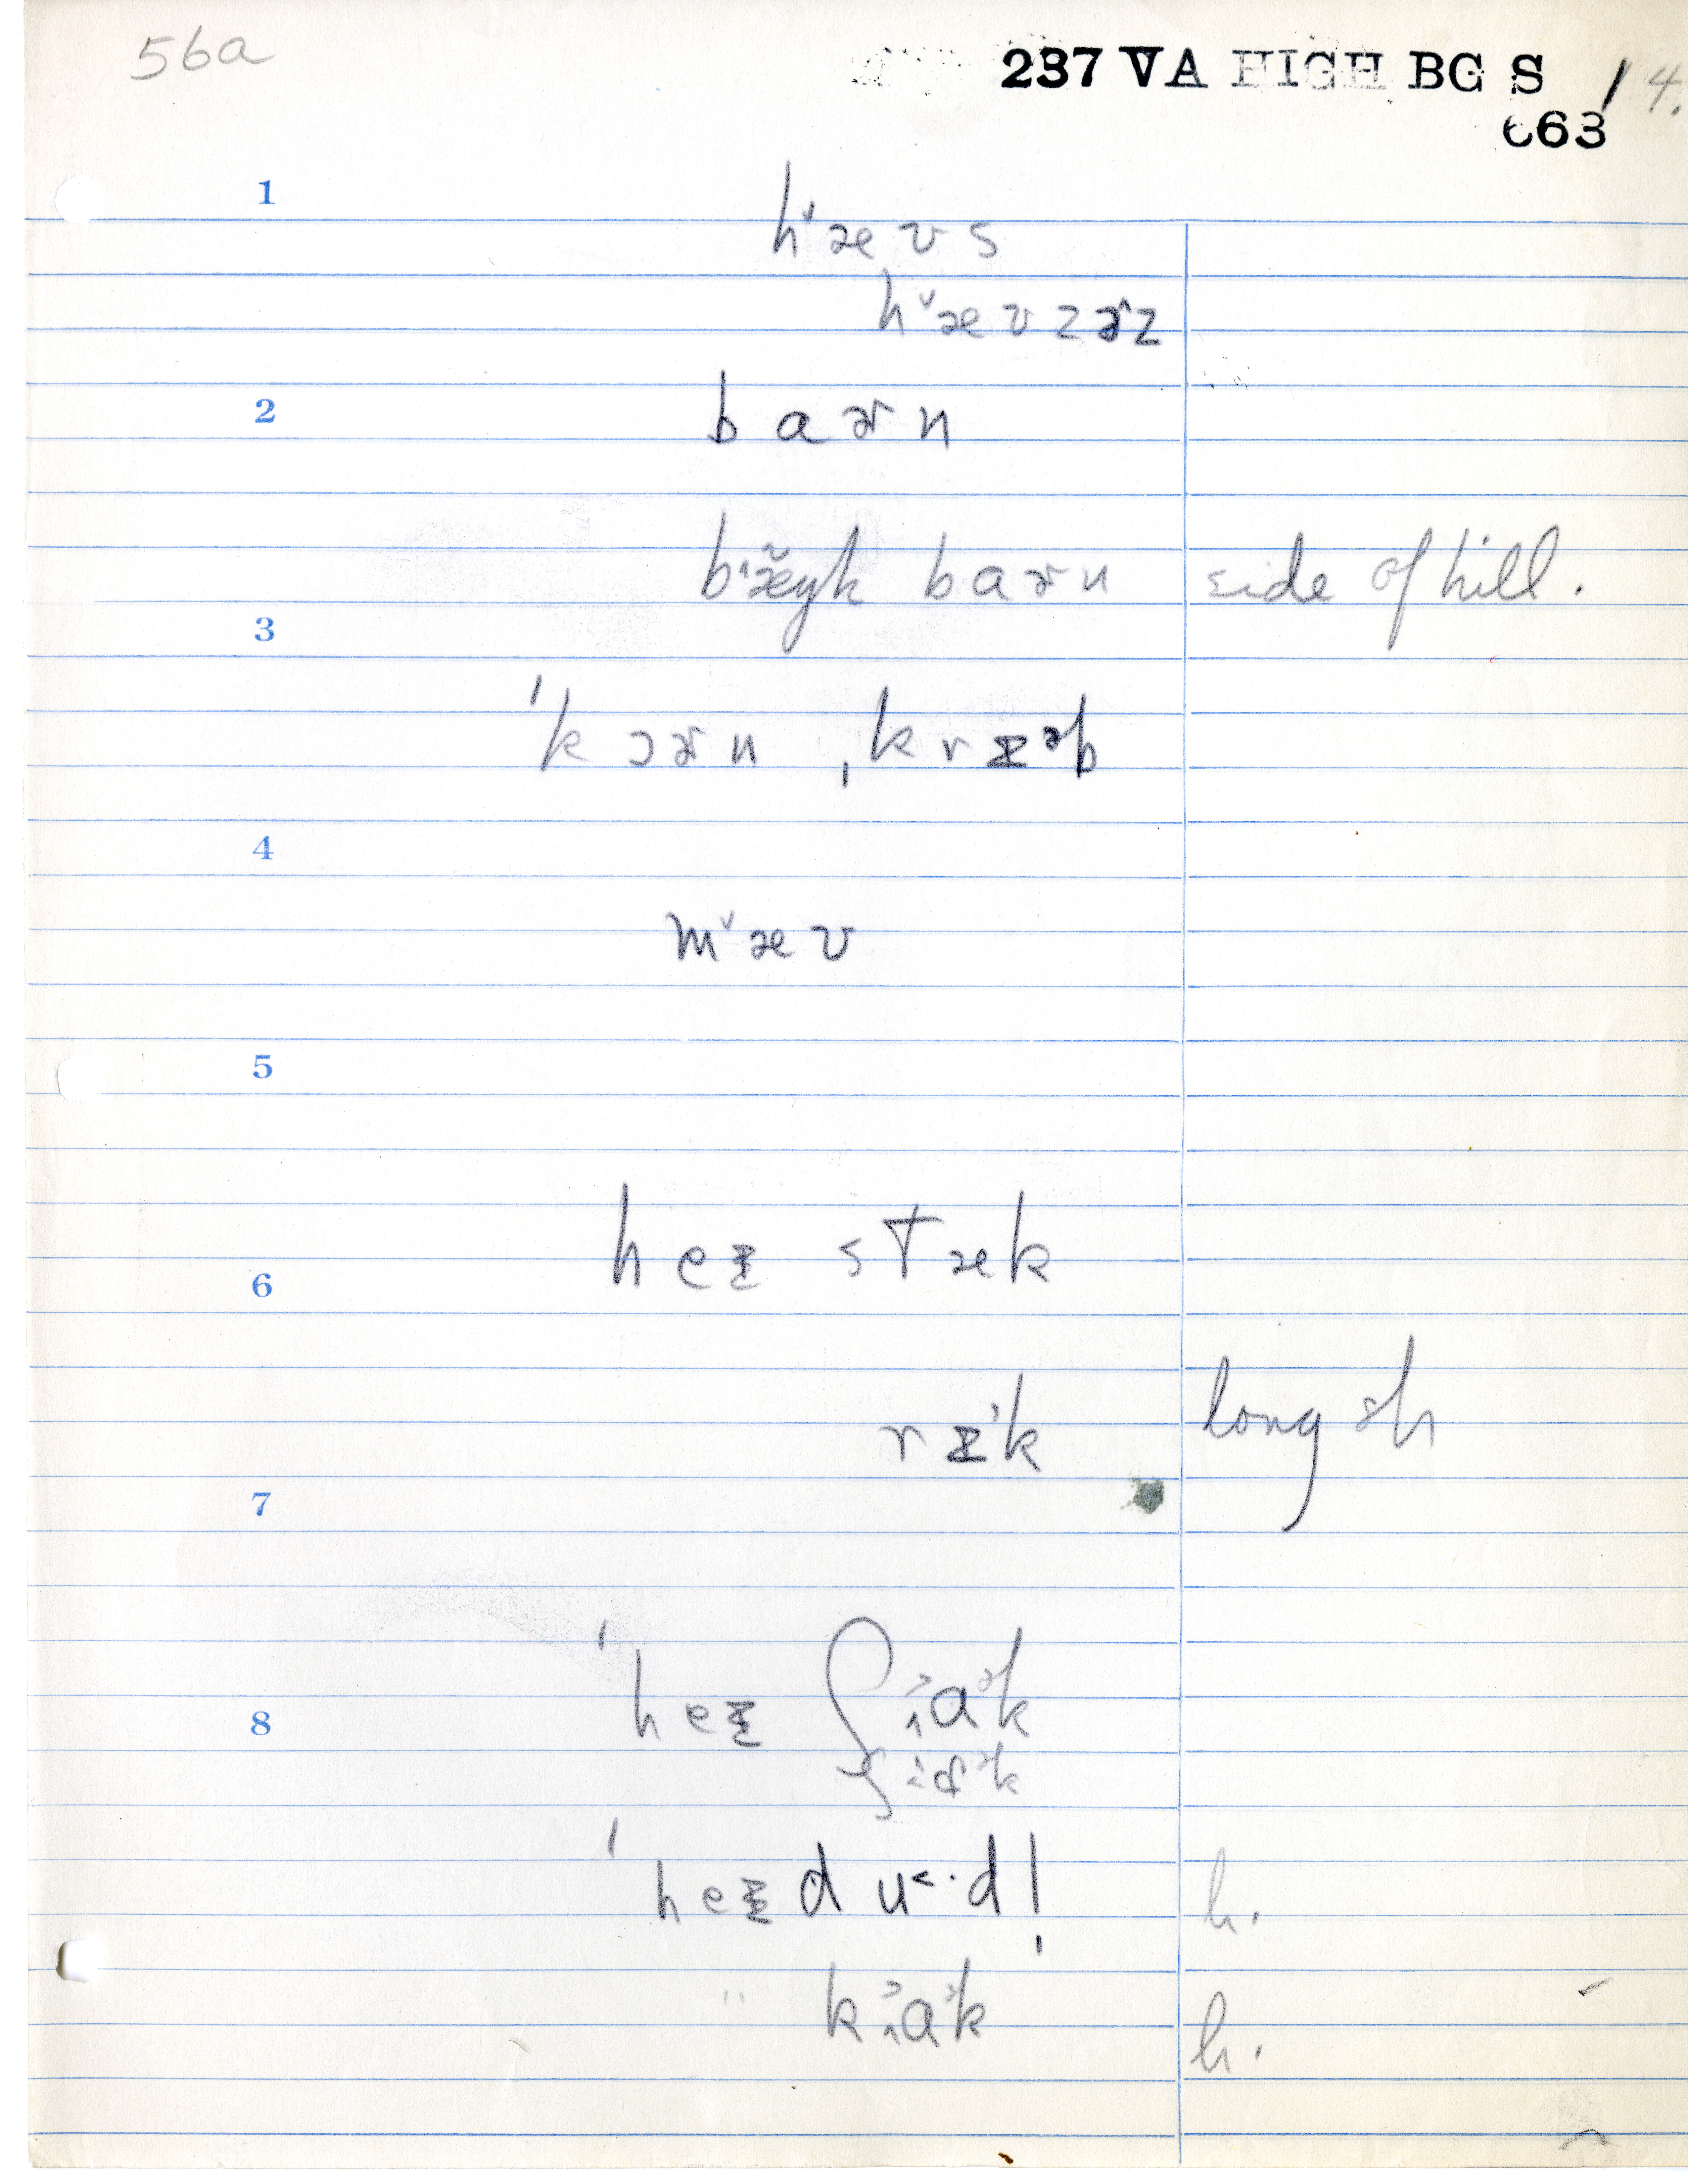 56a
237 VA HIGH BG S / 4.
663
1
hˇæʊs
hˇæʊzɚz
2
baɚn
bæ̆yk baɚn side of hill.
3
ˈkɔɚn ˌkrɪᵊb
4
mˇæʊ
5
heɪ stæk
6
rɪᵊk long sh
7
ˈheɪ ʃaᵊk
8
ˈheɪ du˂·d! h.
" kaᵊk h.